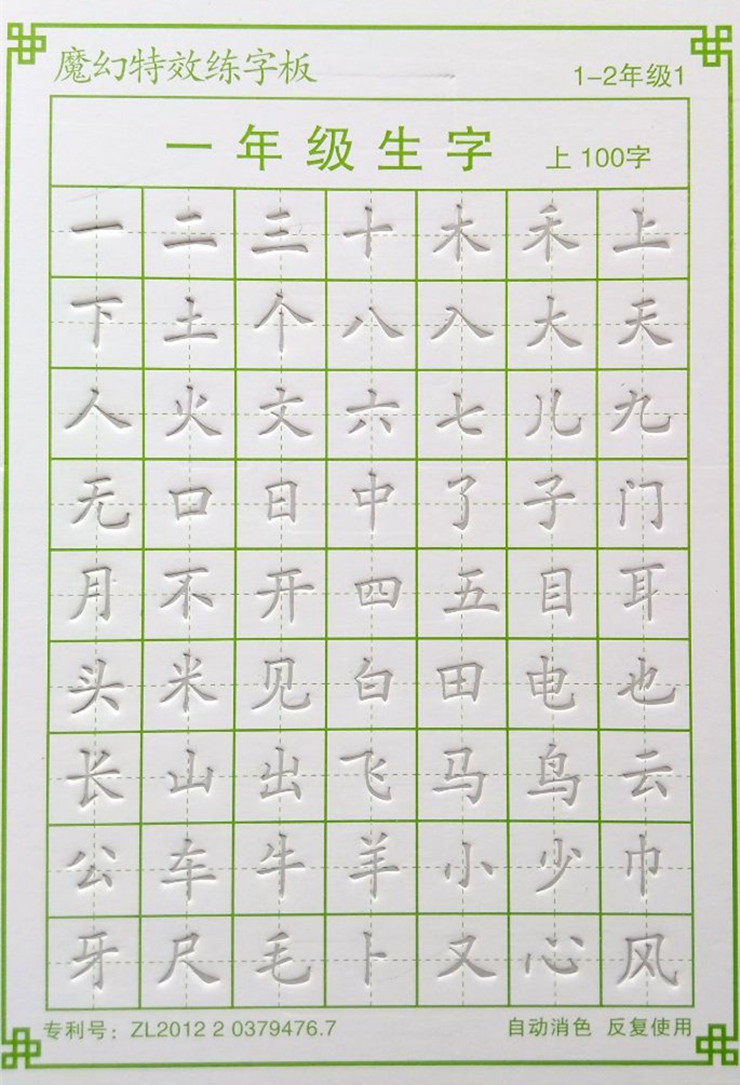 魔幻特效练字板
1-2年级1
一年级生字 上 100字
一 二 三 十 木 禾 上
下 土 个 八 入 大 天
人 火 文 六 七 儿 九
无 口 日 中 了 子 门
月 不 开 四 五 目 耳
头 米 见 白 田 电 也
长 山 出 飞 马 鸟 云
公 车 牛 羊 小 少 巾
牙 尺 毛 卜 又 心 风
专利号：ZL2012 2 0379476.7
自动消色 反复使用